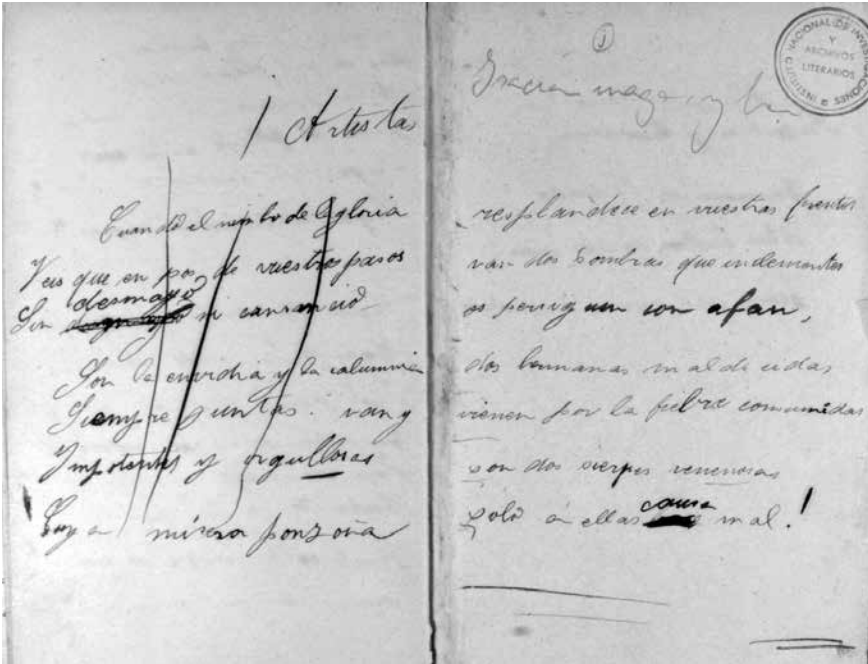 Artistas
Cuando el nimbo de la gloria
Veis que en pos, de vuestros pasos
desmayo
Sin ni cansancio
Son la envidia y la calumnia
Siempre juntas. van y
Impotentes y orgullosas
Cuya mísera ponzoña
1
INSTITUTO NACIONAL DE INVESTIGACIONES
Y
ARCHIVOS
LITERARIOS
y
resplandece en vuestras frentes
van dos sombras que inclementes
os persiguen con afan,
dos hermanas maldecidas
vienen por la fiebre consumidas
son dos sierpes venenosas
causa
Solo á ellas mal.!